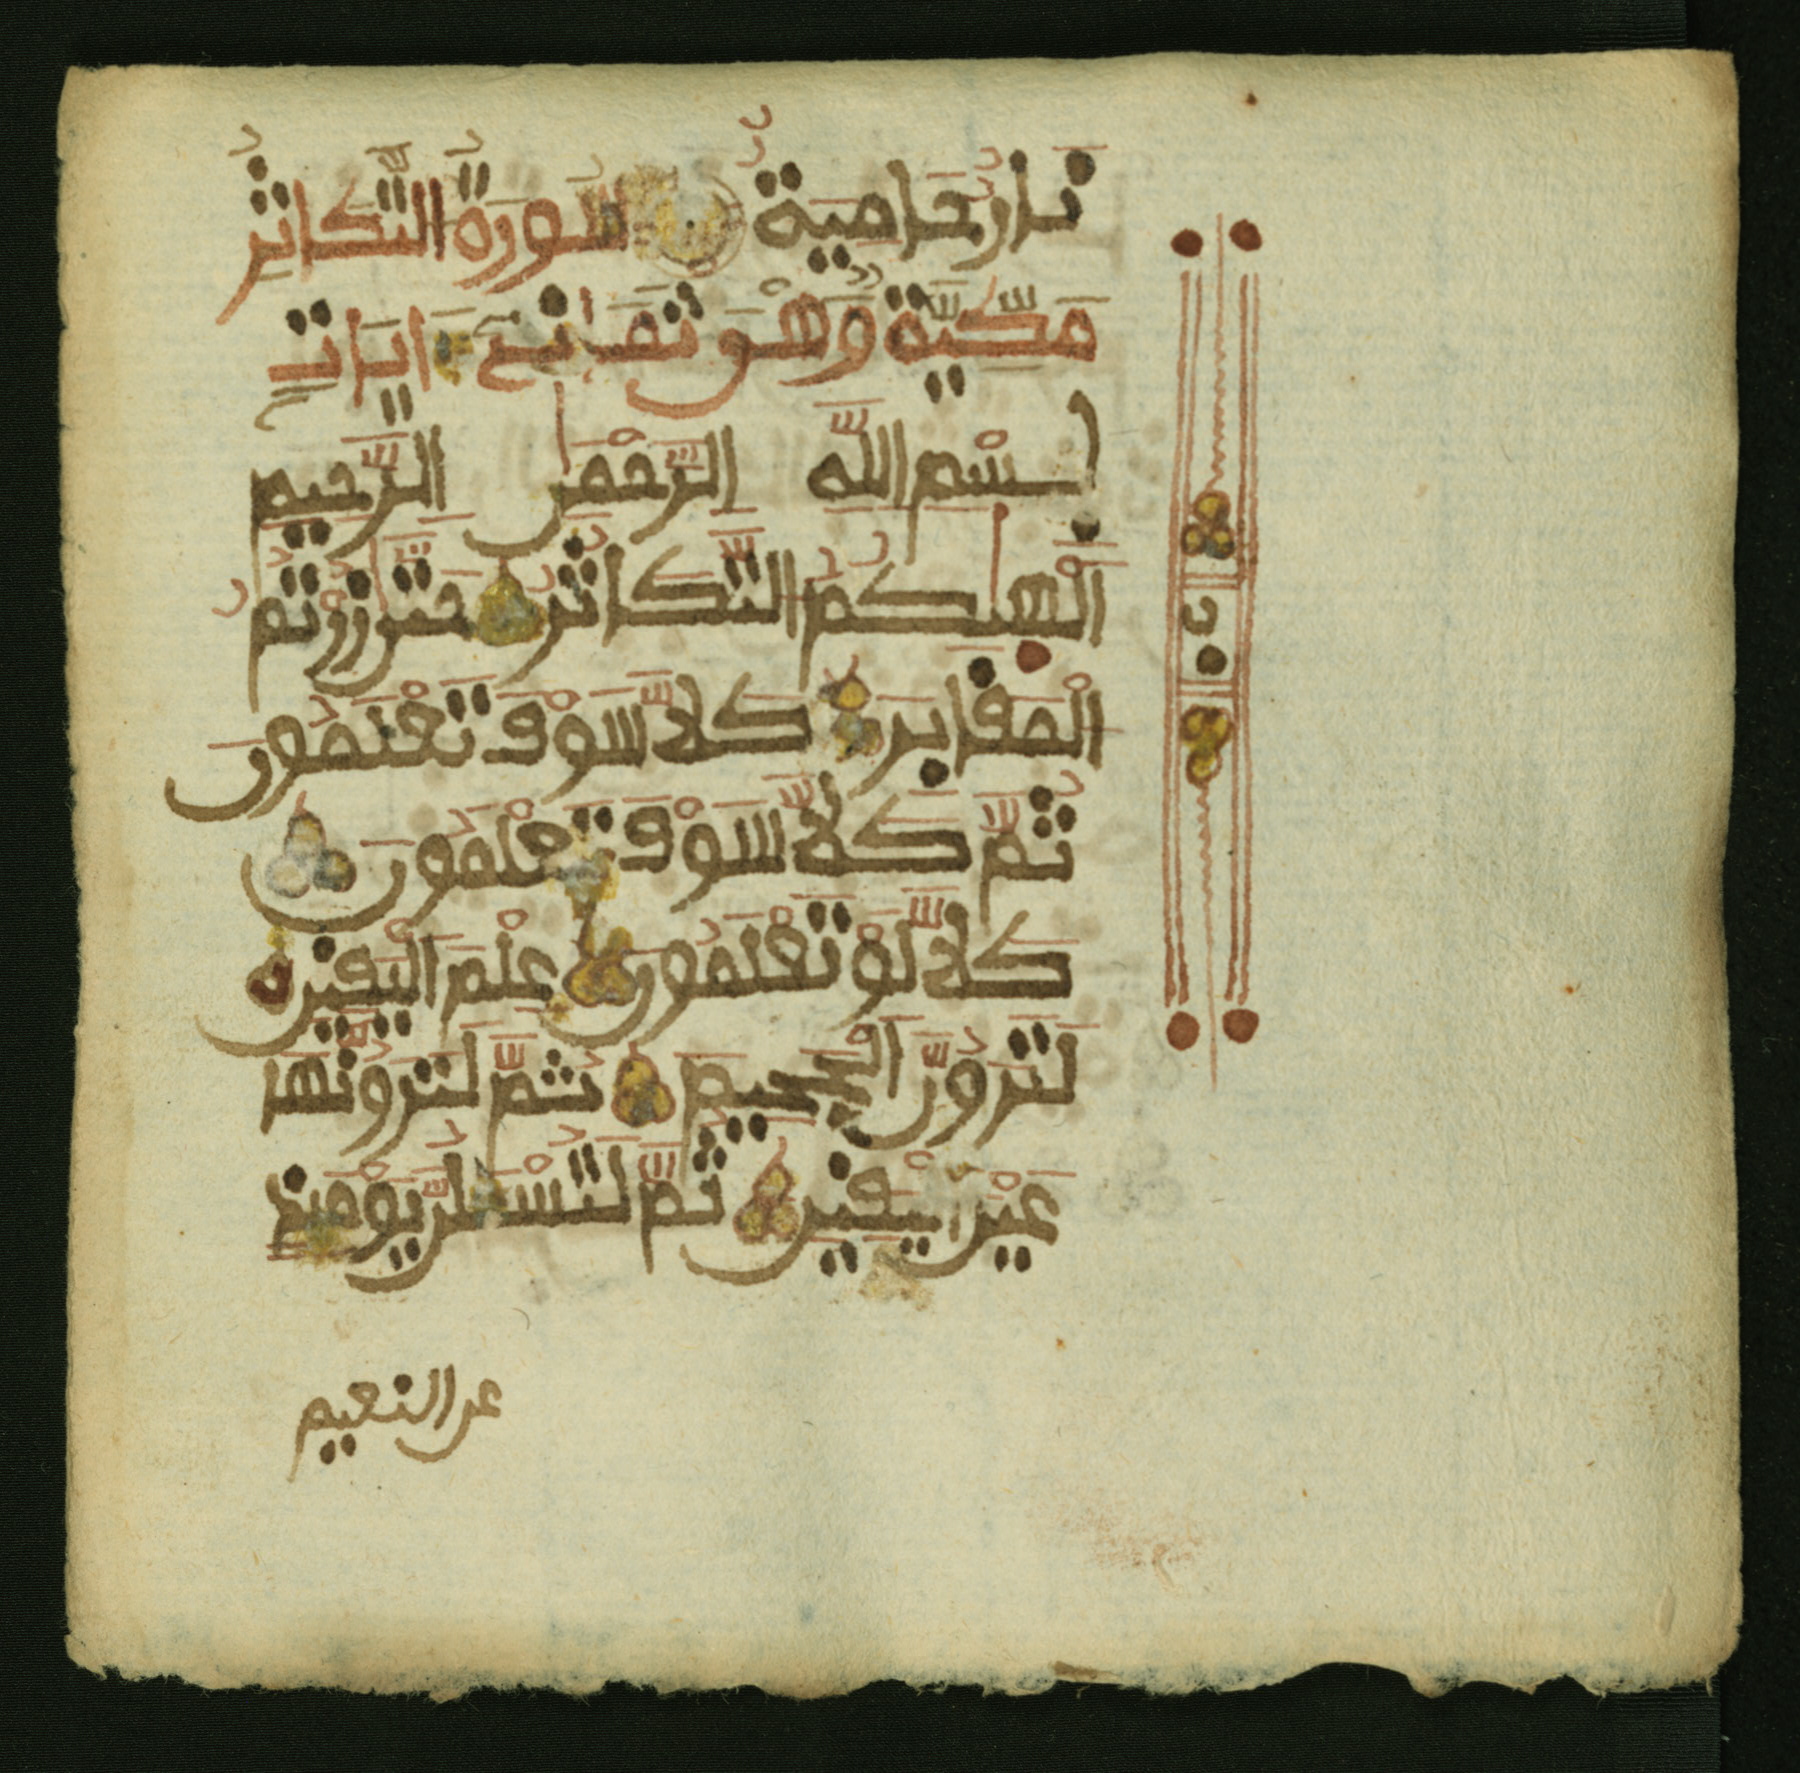 نار حامية سورة التكاثر
مكية وهو ثمانى ءايات
بسم الله الرحمن الرحيم
ألهىكم التكاثر حتى زرتم
المقابر كلا سوف تعلمون
ثم كلا سوف تعلمون
كلا لو تعلمون علم اليقين
لترون الجحيم ثم لترونها
عين اليقين ثم لتسئلن يومئذ
عن النعيم